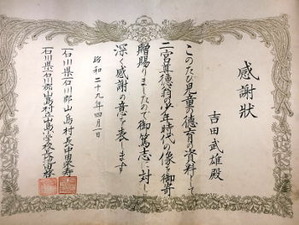 感謝狀
吉田武雄殿
このたび児童の徳育資料として
二宮尊徳翁の少年時代の像を御寄
贈賜りましたので御篤志に対し
深く感謝の意を表します
昭和二十九年四月一日
石川県石川郡山島村長
石川県石川郡山島村立山島小学校長